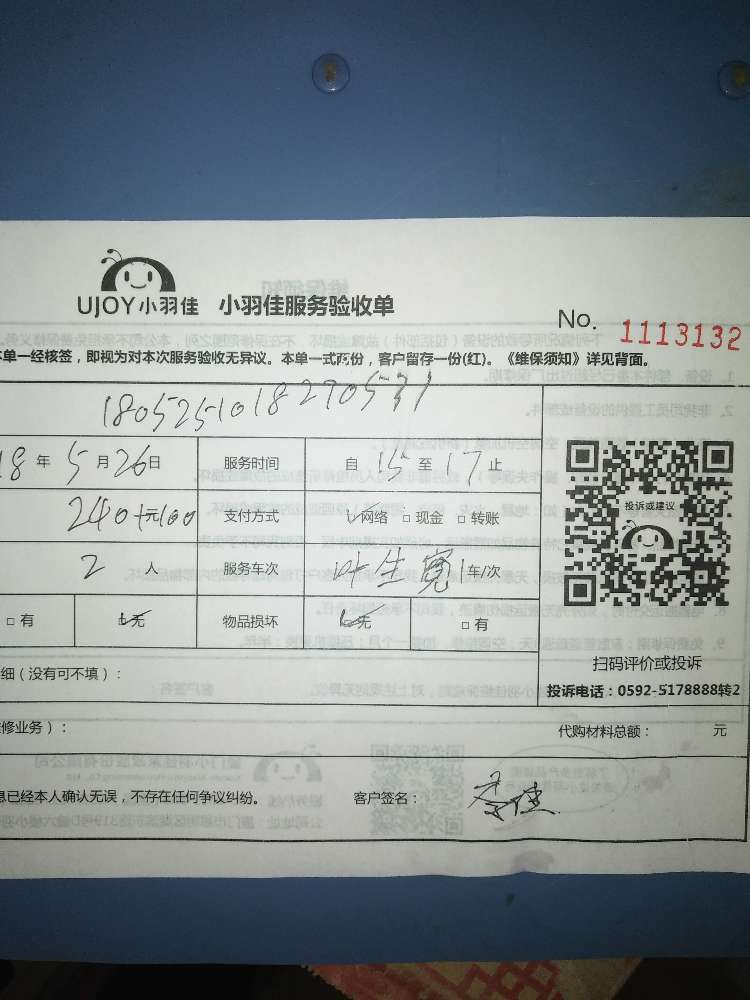 UJOY小羽佳 小羽佳服务验收单
No. 1113132
本单一经核签，即视为对本次服务验收无异议。本单一式两份，客户留存一份(红)。《维保须知》详见背面。
180525101827053
18 年 5 月 26 日 服务时间 自 15 至 17 止
240+元100 支付方式 网络 □ 现金 □ 转账
投诉或建议
2 人 服务车次 叶生宽 1车/次
□ 有 无 物品损坏 无 □ 有
扫码评价或投诉
细（没有可不填）：
投诉电话：0592-5178888转2
修业务）： 代购材料总额： 元
息已经本人确认无误，不存在任何争议纠纷。 客户签名：